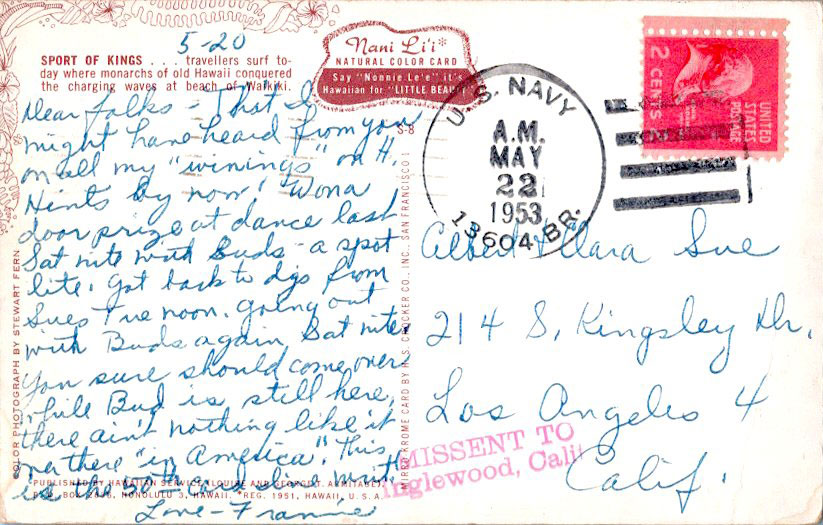 5-20
SPORT OF KINGS . . . travellers surf to-
day where monarchs of old Hawaii conquered
the charging waves at beach of Waikiki.
Nani Li'i*
NATURAL COLOR CARD
Say "Nonnie Le'e" it's
Hawaiian for "LITTLE BEAUTY"
S-8
Dear folks - That I
might have heard from you
on all my "winings" on H.
Hints by now! Won a
door prize at dance last
Sat nite with Buds - a spot
lite. Got back to digs from
Sues Tue noon. Going out
with Buds again Sat nite
You sure should come over
while Bud is still here,
there ain't nothing like it
over there "in America". This
is the 50th card I've writ
Love - Frannie
COLOR PHOTOGRAPH BY STEWART FERN
PUBLISHED BY HAWAIIAN SERVICE
BOX HONOLULU 3, HAWAII. *REG. 1951, HAWAII, U. S. A.
MIRRO-KROME CARD BY H. S. CROCKER CO., INC., SAN FRANCISCO 1
U.S. NAVY
A.M.
MAY
22
1953
13604 BR.
UNITED
STATES
POSTAGE
2 CENTS
Albert & Clara Sue
214 S. Kingsley Dr.
Los Angeles 4
Calif.
MISSENT TO
Inglewood, Calif.